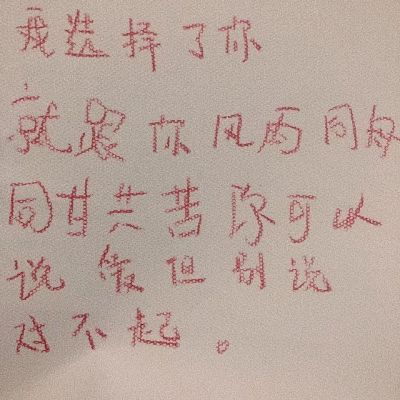 我选择了你
就跟你风雨同舟
同甘共苦你可以
说 但别说
对不起。